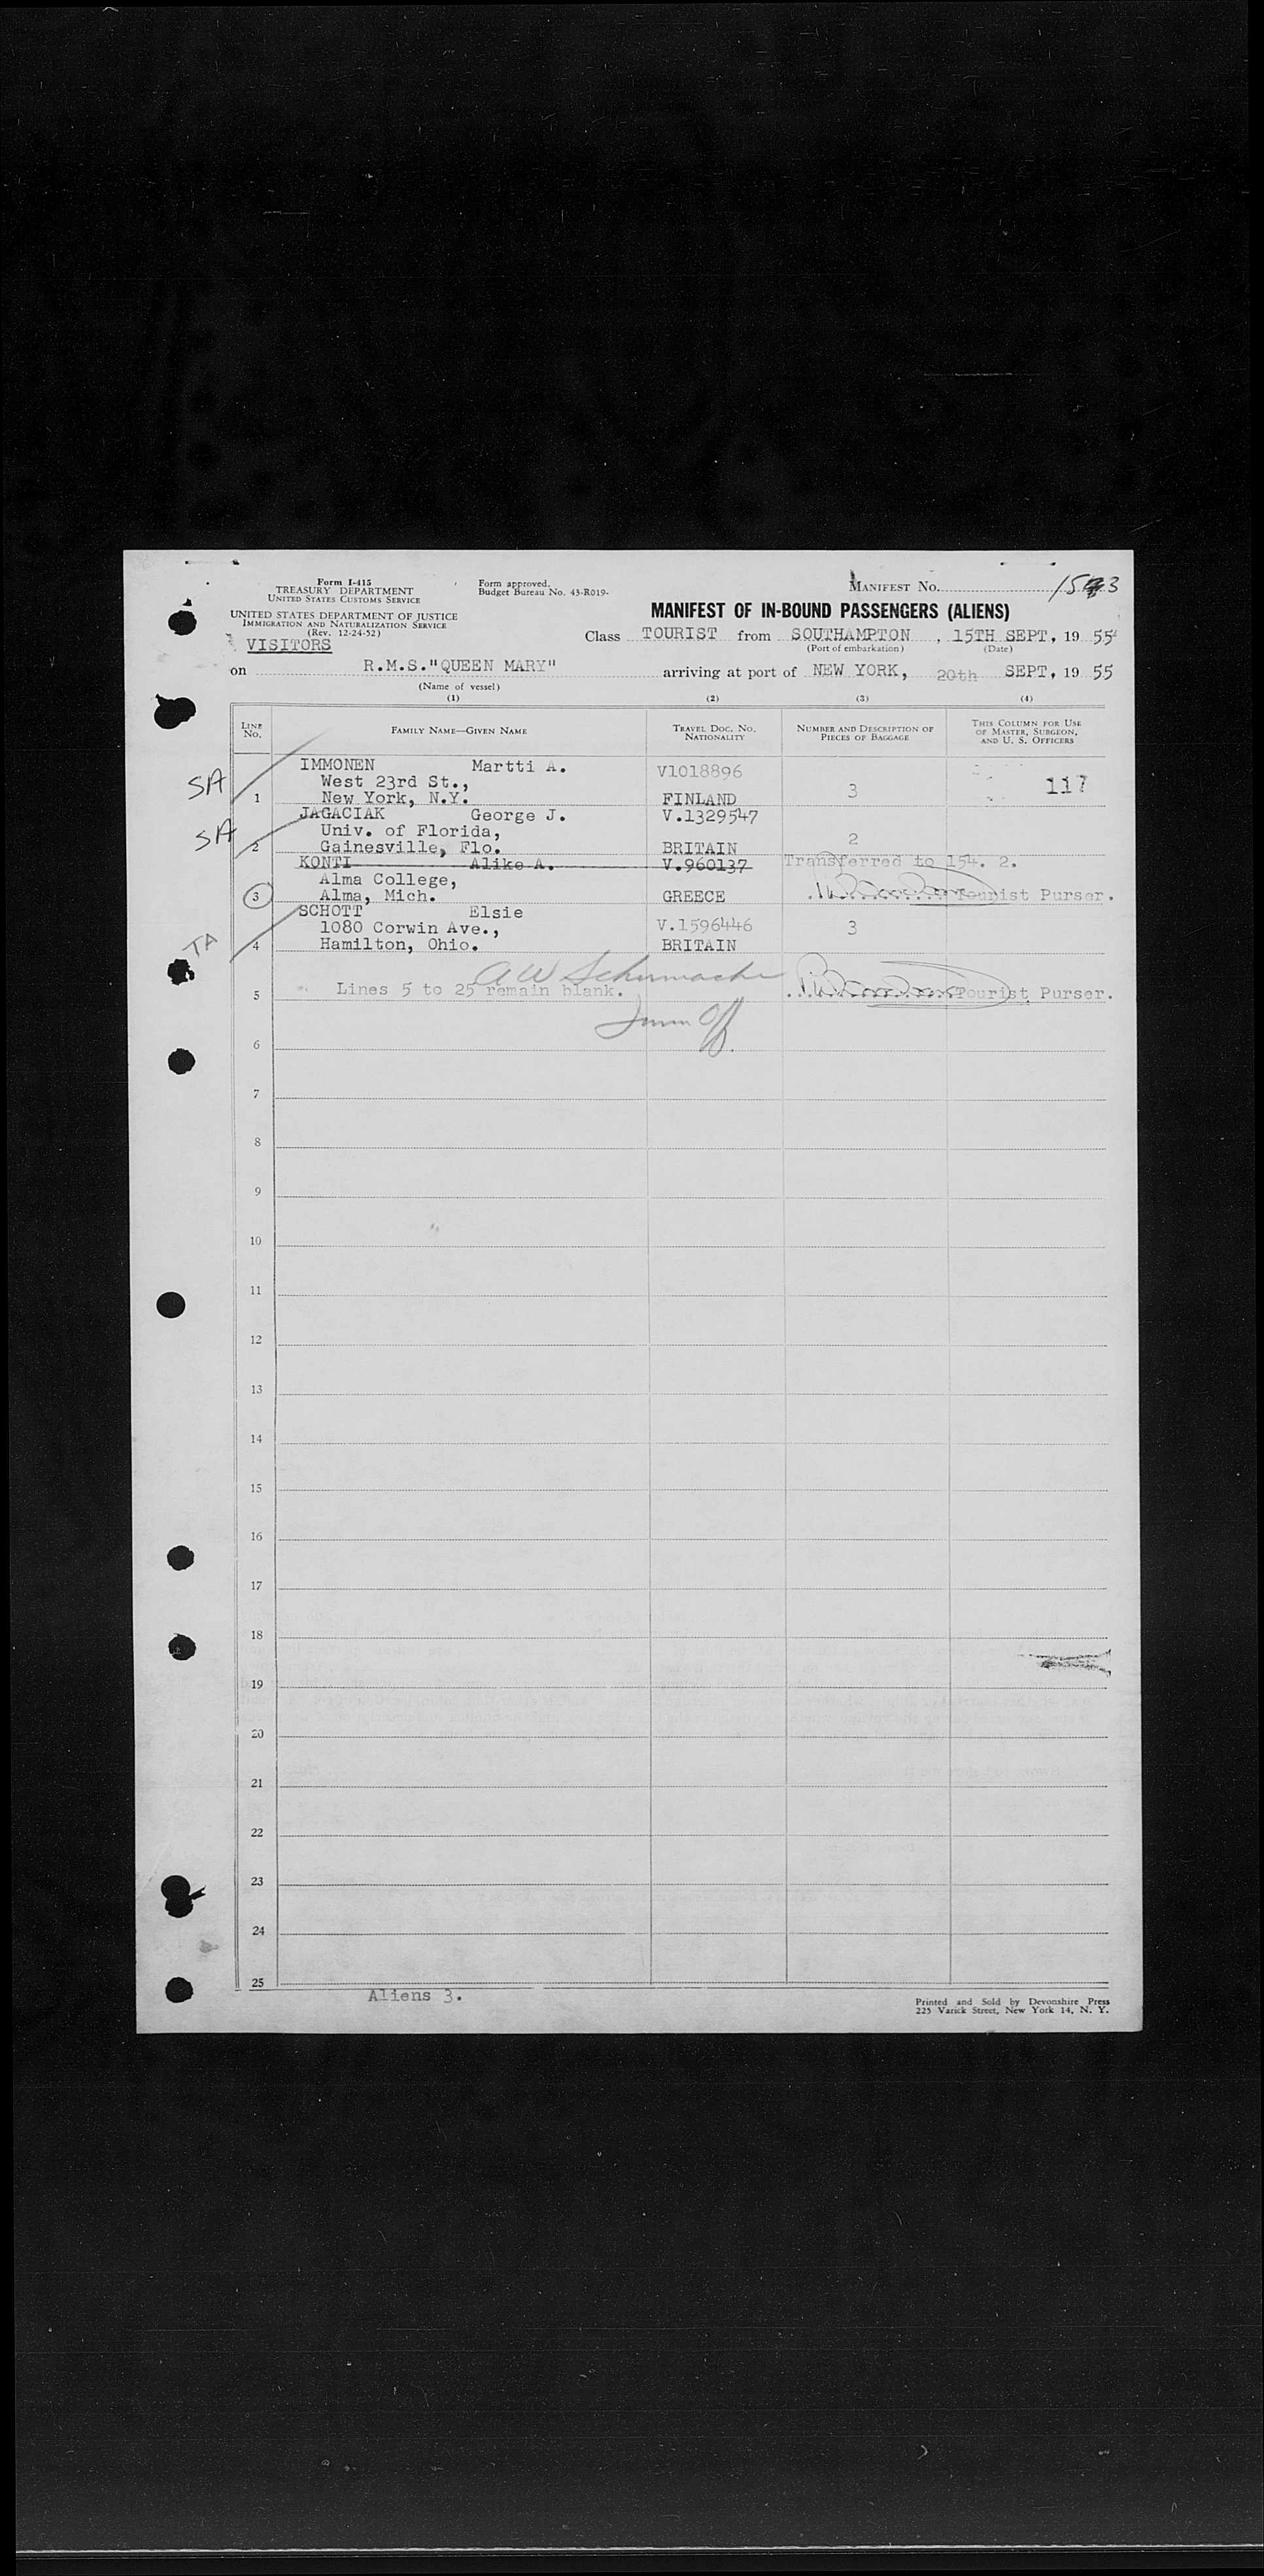 Form I-415
TREASURY DEPARTMENT
UNITED STATES CUSTOMS SERVICE
Form approved.
Budget Bureau No. 43-R019-
MANIFEST No.
UNITED STATES DEPARTMENT OF JUSTICE
IMMIGRATION AND NATURALIZATION SERVICE
(Rev. 12-24-52)
VISITORS
MANIFEST OF IN-BOUND PASSENGERS (ALIENS)
Class TOURIST from SOUTHAMPTON, 15TH SEPT, 19 55
(Port of embarkation) (Date)
on R.M.S."QUEEN MARY" arriving at port of NEW YORK, 20th SEPT, 19 55
(Name of vessel)
(1) (2) (3) (4)
LINE No. FAMILY NAME—GIVEN NAME TRAVEL DOC. NO. NATIONALITY NUMBER AND DESCRIPTION OF PIECES OF BAGGAGE THIS COLUMN FOR USE OF MASTER, SURGEON, AND U. S. OFFICERS
IMMONEN Martti A. V1018896
SA West 23rd St., 3 117
1 New York, N.Y. FINLAND
JAGACIAK George J. V.1329547
SA Univ. of Florida, 2
2 Gainesville, Flo. BRITAIN
KONTI Alike A. V.960137 Transferred to 154. 2.
Alma College,
3 Alma, Mich. GREECE Tourist Purser.
SCHOTT Elsie V.1596446 3
1080 Corwin Ave.,
TA 4 Hamilton, Ohio. BRITAIN
A W Schumacher
5 Lines 5 to 25 remain blank. Tourist Purser.
Imm Off.
6
7
8
9
10
11
12
13
14
15
16
17
18
19
20
21
22
23
24
25
Aliens 3.
Printed and Sold by Devonshire Press
225 Varick Street, New York 14, N. Y.